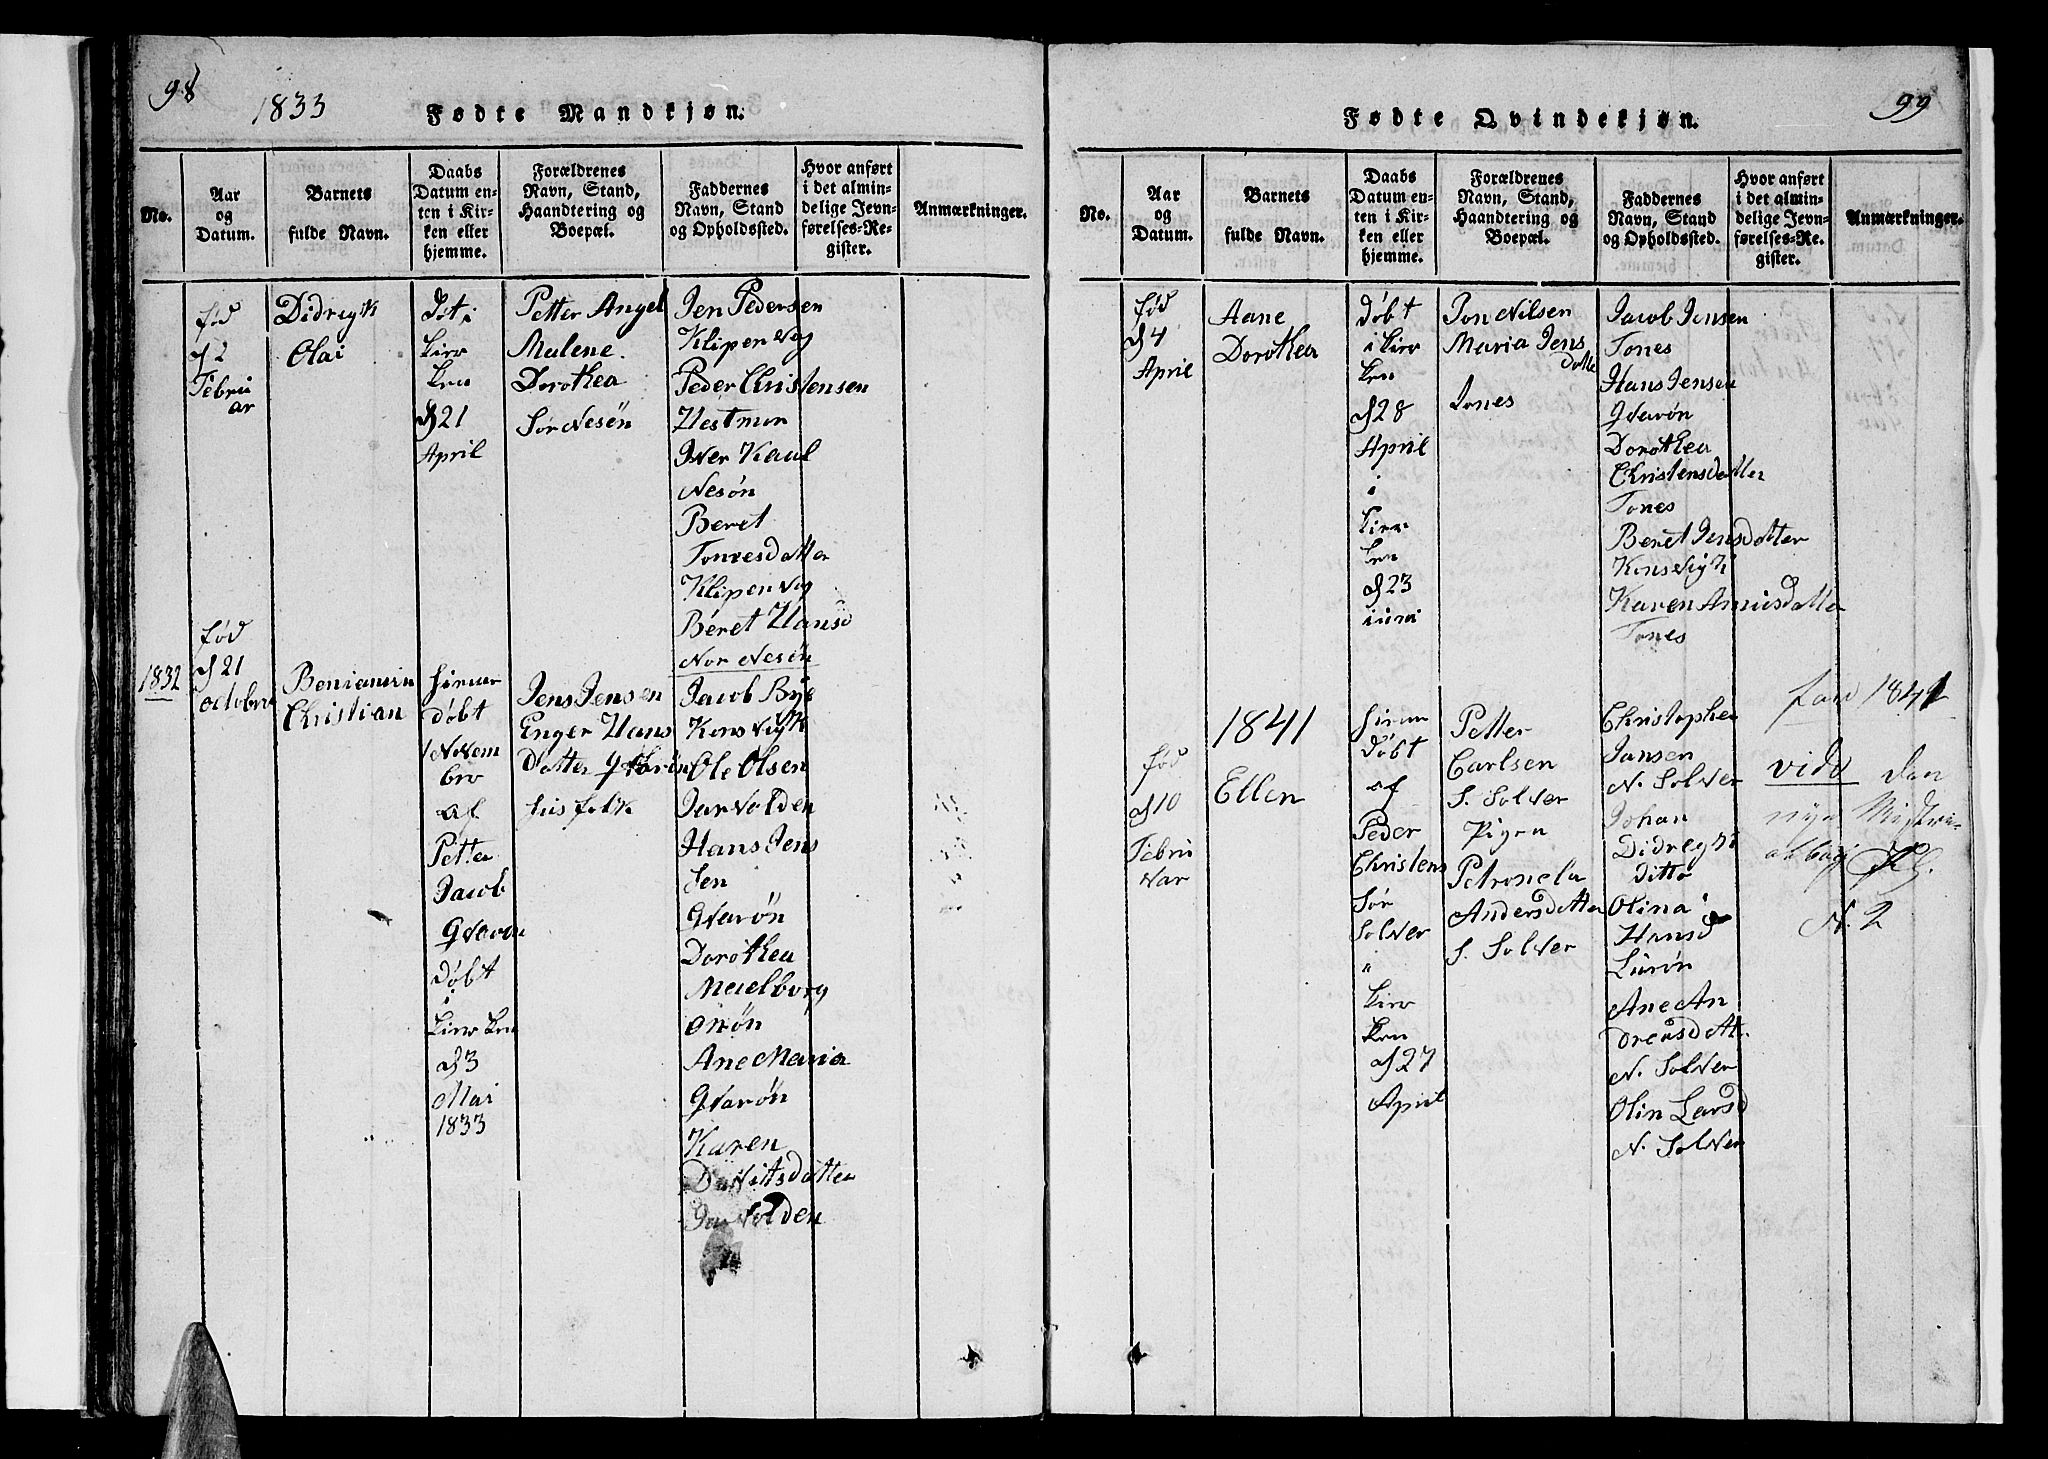 98
1833
Fødte Mandkjøn.
No.
Aar
og
Datum.
Barnets
fulde Navn.
Daabs
Datum en-
ten i Kir-
ken eller
hjemme.
Forældrenes
Navn, Stand,
Haandtering og
Boepæl.
Faddernes
Navn, Stand
og Opholdssted.
Hvor anført
i det almin-
delige Jevn-
førelses-Re-
gister.
Anmærkninger.
fød
d 2
Febru
ar
Didregk
Olai
døt i
kier
ken
d 21
April
Petter Angel
Malene
Dorothea
Sør Nesøn
Jen Pedersen
Klipen Vog
Peder Christensen
Hestmon
Iver Kaul
Nesøn
Beret
Tonnesdatter
Klipen Vog
Beret Hansd
Nor Nesøn
1832
fød
d 21
octobre
Beniamin
Christian
hiemme
døbt
Novem
bre
af
Petter
Jacob
Qvarøn
døbt
i
kierken
d 3
Mai
1833
Jens Jensen
Enger Hans
datter Qvarøn
husfolk
Jacob Bye
Konsvigk
Ole Olsen
Jarvolden
Hans Jens
sen
Qvarøn
Dorothea
Meielborg
Onøn
Ane Maria
Qvarøn
Karen
Davitsdatter
Jarvolden
99
Fødte Qvindekjøn.
No.
Aar
og
Datum.
Barnets
fulde Navn.
Daabs
Datum en-
ten i Kir-
ken eller
hjemme.
Forældrenes
Navn, Stand,
Haandtering og
Boepæl.
Faddernes
Navn, Stand
og Opholdssted.
Hvor anført
i det almin-
delige Jevn-
førelses-Re-
gister.
Anmærkninger.
fød
d 4
April
Aane
Dorothea
døbt
i kier
ken
d 28
April
i
kier
ken
d 23
iuni
Jon Nilsen
Maria Jens
datte
Tones
Jacob Jensen
Tones
Hans Jensen
Qvarøn
Dorothea
Christensdatter
Tones
Beret Jensdatter
Konsvigk
Karen
Tones
fød
d 10
Febru
var
1841
Ellen
hiem
døbt
af
Peder
Christens
Sør
Solver
i
kier
ken
d 27
April
Petter
Carlsen
S. Solver
Pigen
Petronela
Andersdatter
S. Solver
Christopher
Jansen
N. Solver
Johan
Didregk
ditto
Olina
Hansd
Lurøn
Ane An
dreasdat.
N. Solver
Olin Larsd
N. Solver
1841
vide den
nye Mistri-
N. 2